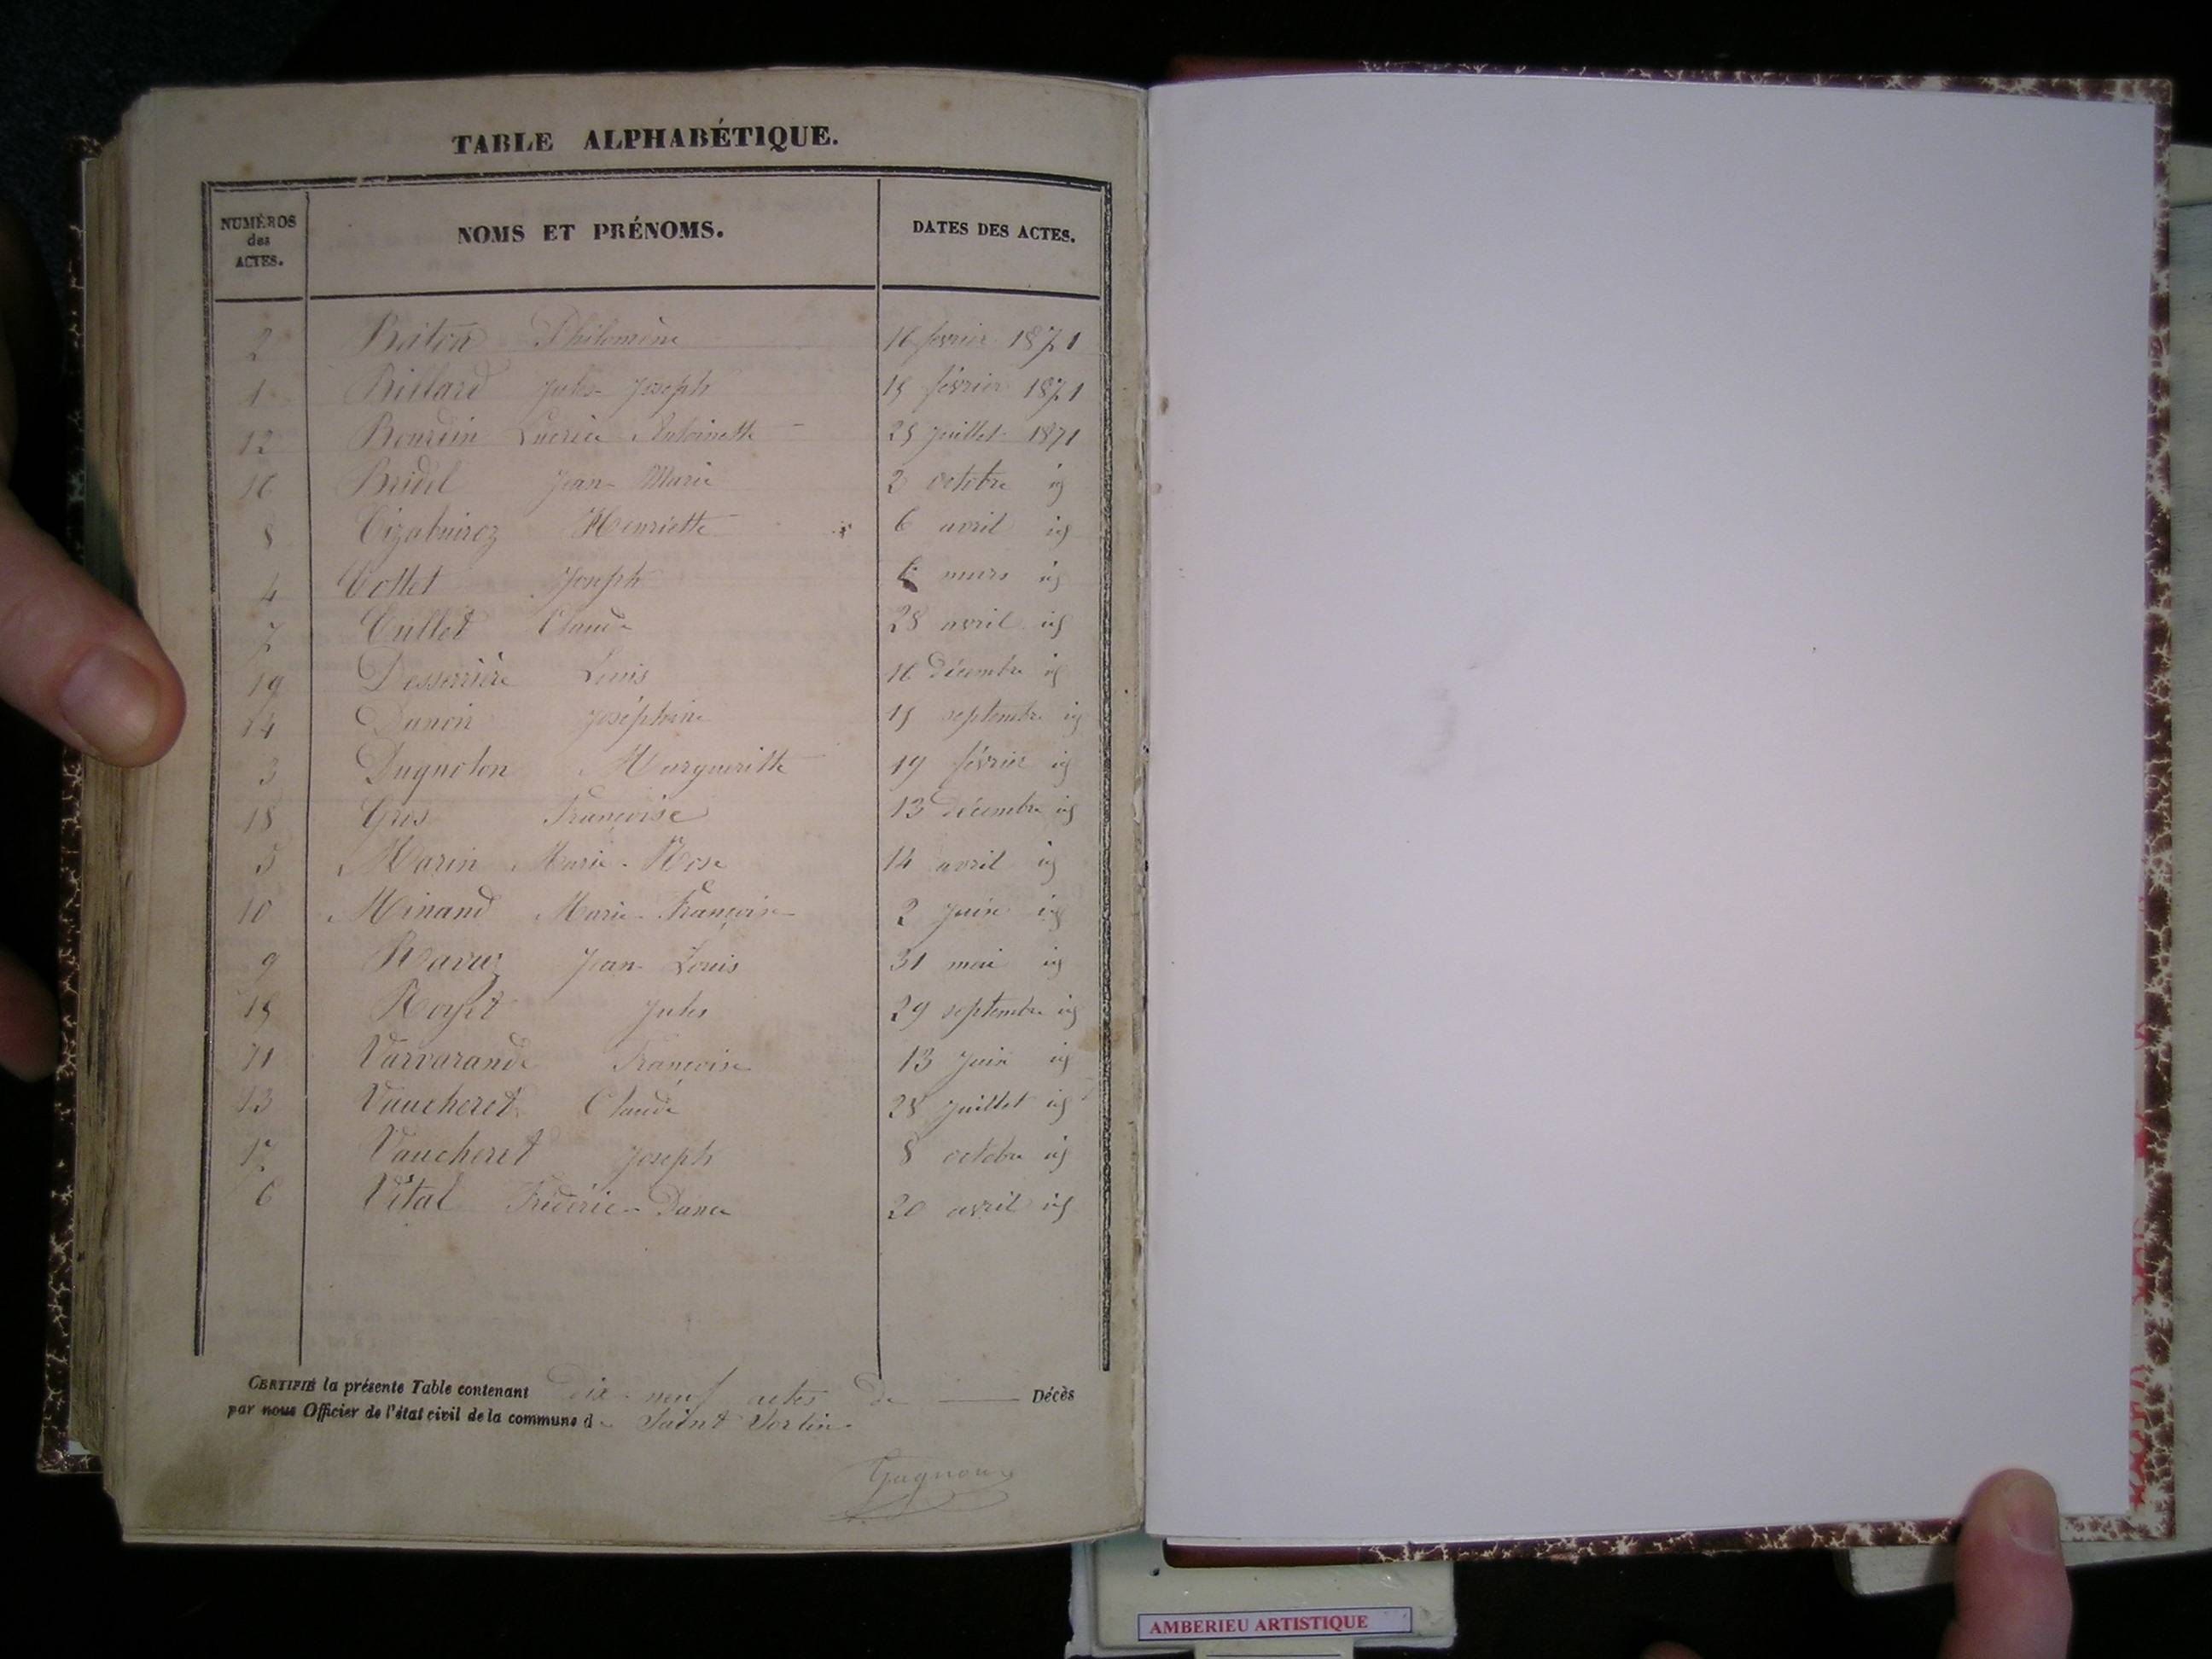 TABLE ALPHABÉTIQUE.
NUMÉROS
des
ACTES.
NOMS ET PRÉNOMS.
DATES DES ACTES.
2 Philomène 16 février 1871
1 Billard Jules-Joseph 15 février 1871
12 Bourdin Lucrèce Antoinette 25 juillet 1871
16 Bridel Jean-Marie 2 octobre id
8 Henriette 6 avril id
4 Collet Joseph mars id
7 Cullet Claude 28 avril id
19 Desserrière Louis 16 décembre id
14 Joséphine 15 septembre id
3 Margueritte 19 février id
18 Gris Françoise 13 décembre id
5 Marin Marie-Rose 14 avril id
10 Minand Marie-Françoise 2 juin id
9 Jean-Louis 31 mai id
15 Royet Jules 29 septembre id
11 Varvarande Françoise 13 juin id
13 Vaucheret Claude 28 juillet id
17 Vaucheret Joseph 8 octobre id
6 Vital Frédéric- 20 avril id
CERTIFIÉ la présente Table contenant dix-neuf actes de Décès
par nous Officier de l'état civil de la commune de Saint Sorlin
AMBERIEU ARTISTIQUE